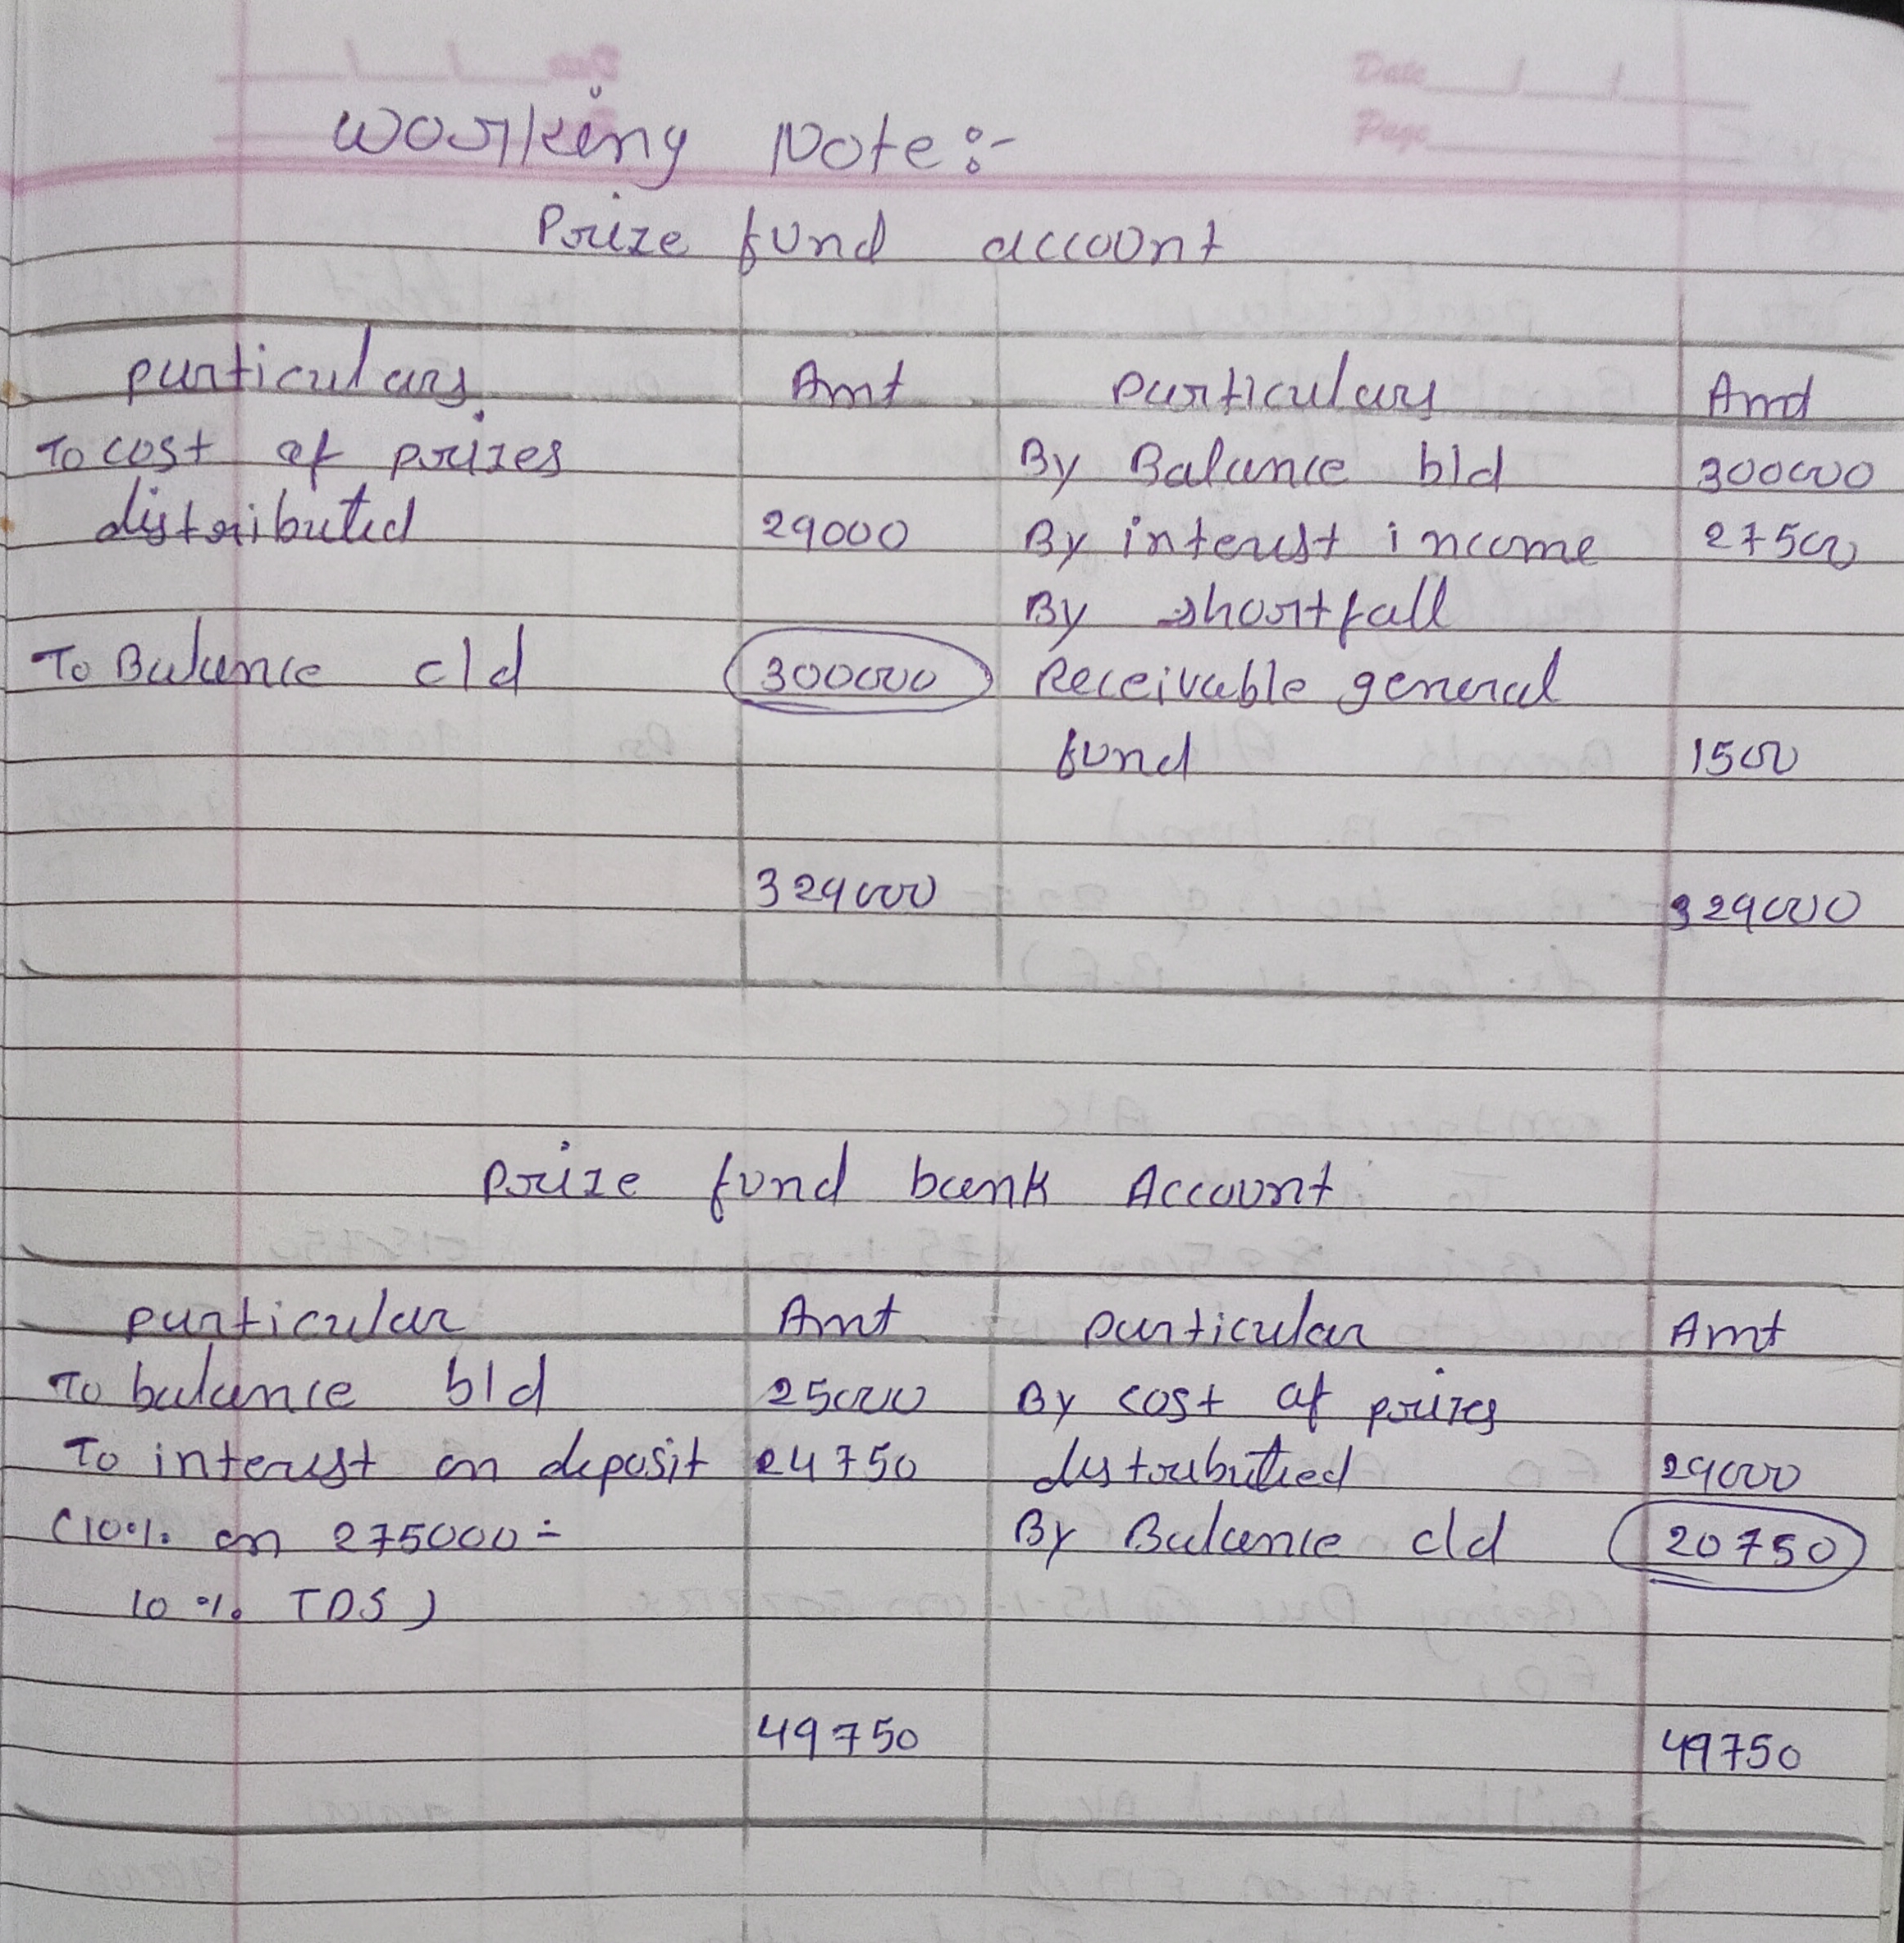 Date
Page
Working Note:-
Prize fund account
particulars Amt particulars Amt
To cost of prizes By Balance b/d 300000
distributed 29000 By interest income 27500
By shortfall
To Balance c/d 300000 Receivable general
fund 1500
329000 329000
Prize fund bank Account
particular Amt particular Amt
To balance b/d 25000 By cost of prizes
To interest on deposit 24750 distributied 29000
(10% on 275000 - By Balance c/d 20750
10 % TDS)
49750 49750